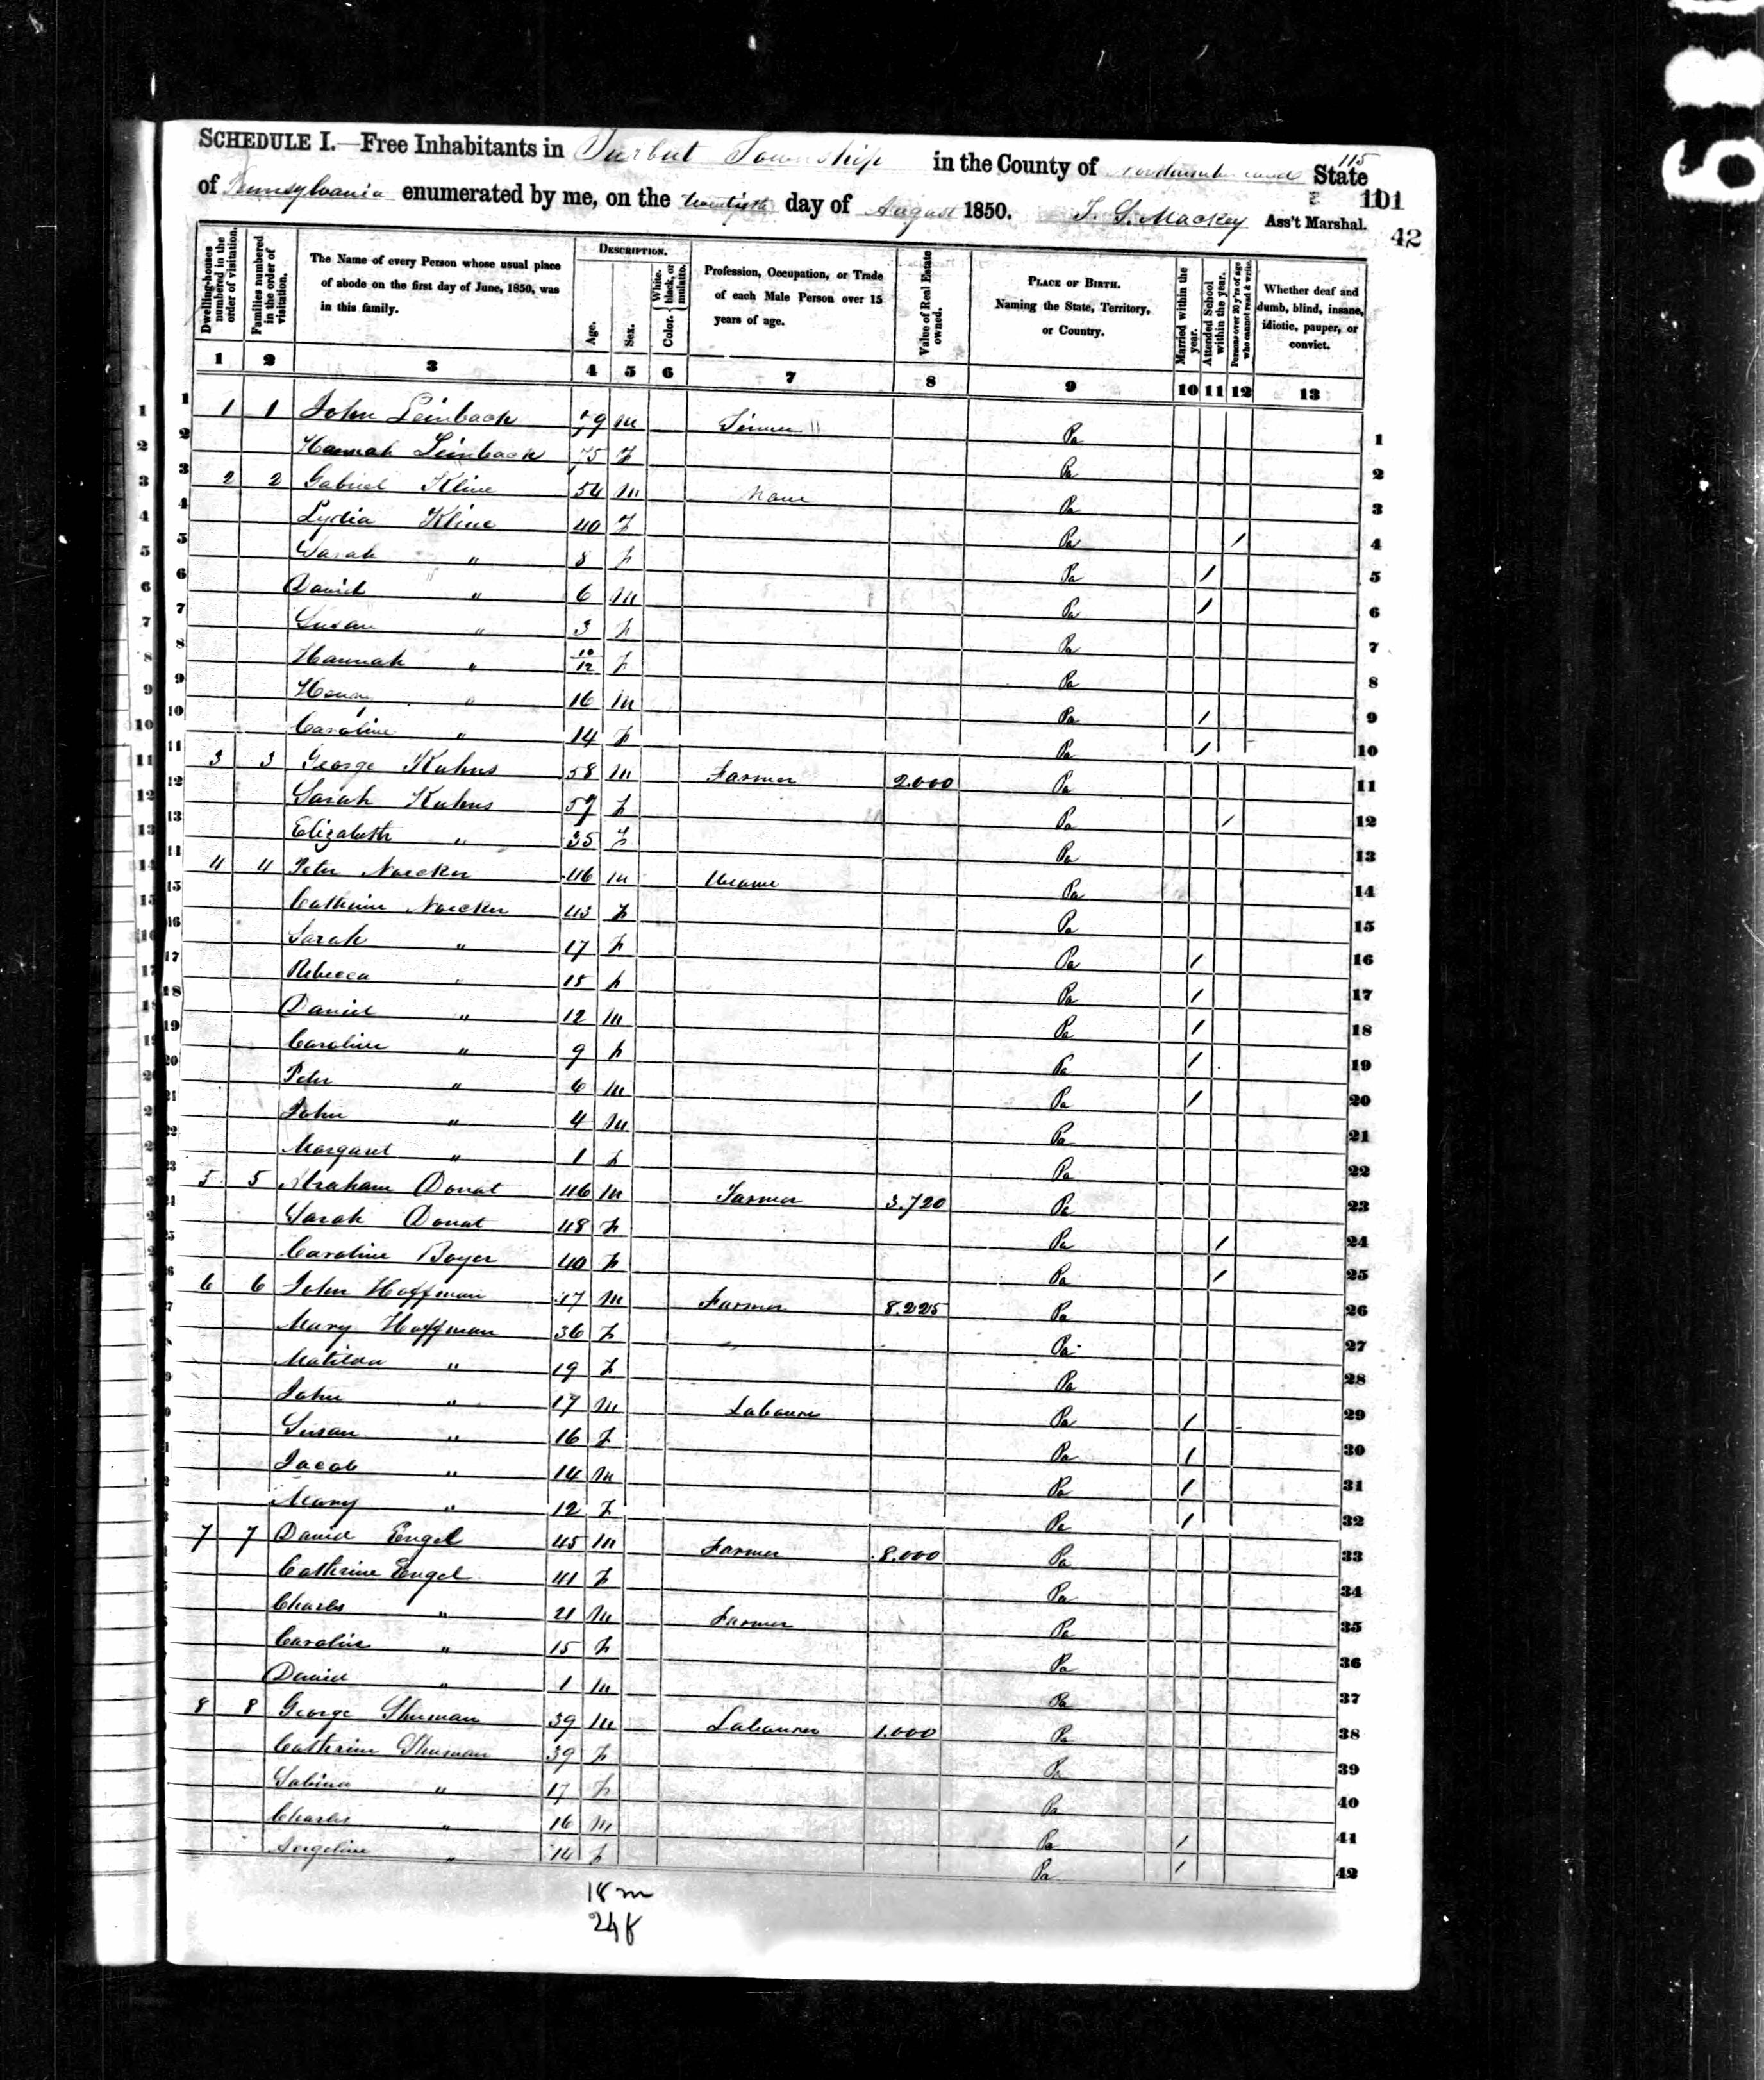 115
SCHEDULE I.—Free Inhabitants in Turbut Township in the County of Northumberland State
101
of Pennsylvania enumerated by me, on the twentieth day of August 1850. T. S. Mackey Ass't Marshal.
42
Dwelling-houses numbered in the order of visitation.
Families numbered in the order of visitation.
The Name of every Person whose usual place of abode on the first day of June, 1850, was in this family.
DESCRIPTION.
Age.
Sex.
Color. White, black, or mulatto.
Profession, Occupation, or Trade of each Male Person over 15 years of age.
Value of Real Estate owned.
PLACE OF BIRTH. Naming the State, Territory, or Country.
Married within the year.
Attended School within the year.
Persons over 20 y'rs of age who cannot read & write.
Whether deaf and dumb, blind, insane, idiotic, pauper, or convict.
1 2 3 4 5 6 7 8 9 10 11 12 13
1 1 1 John Leinback 79 M Pa 1
2 Hannah Leinback 75 F Pa 2
3 2 2 Gabriel Kline 54 M None Pa 3
4 Lydia Kline 40 F Pa / 4
5 Sarah " 8 F Pa / 5
6 David " 6 M Pa / 6
7 Susan " 3 F Pa 7
8 Hannah " 10/12 F Pa 8
9 Henry " 16 M Pa / 9
10 Caroline " 14 F Pa / 10
11 3 3 George Kuhns 58 M Farmer 2.000 Pa 11
12 Sarah Kuhns 57 F Pa / 12
13 Elizabeth " 35 F Pa 13
4 4 Peter Noecker 46 M Pa 14
15 Catherine Noecker 43 F Pa 15
16 Sarah " 17 F Pa / 16
17 Rebecca " 15 F Pa / 17
18 Daniel " 12 M Pa / 18
19 Caroline " 9 F Pa / 19
20 Peter " 6 M Pa / 20
21 John " 4 M Pa 21
22 Margaret " 1 F Pa 22
23 5 5 Abraham Donat 46 M Farmer 3.720 Pa 23
Sarah Donat 48 F Pa / 24
Caroline Boyer 40 F Pa / 25
6 6 John Hoffman M Farmer 8.225 Pa 26
Mary Hoffman 36 F Pa 27
Matilda " 19 F Pa 28
John " 17 M Labourer Pa / 29
Susan " 16 F Pa / 30
Jacob " 14 M Pa / 31
Mary " 12 F Pa / 32
7 7 David Engel 45 M Farmer 8.000 Pa 33
Catherine Engel 41 F Pa 34
Charles " 21 M Farmer Pa 35
Caroline " 15 F Pa 36
David " 1 M Pa 37
8 8 George Shuman 39 M Labourer 1.000 Pa 38
Catherine Shuman 39 F Pa 39
Sabina " 17 F Pa 40
Charles " 16 M Pa / 41
Angeline " 14 F Pa / 42
18 m
24 f